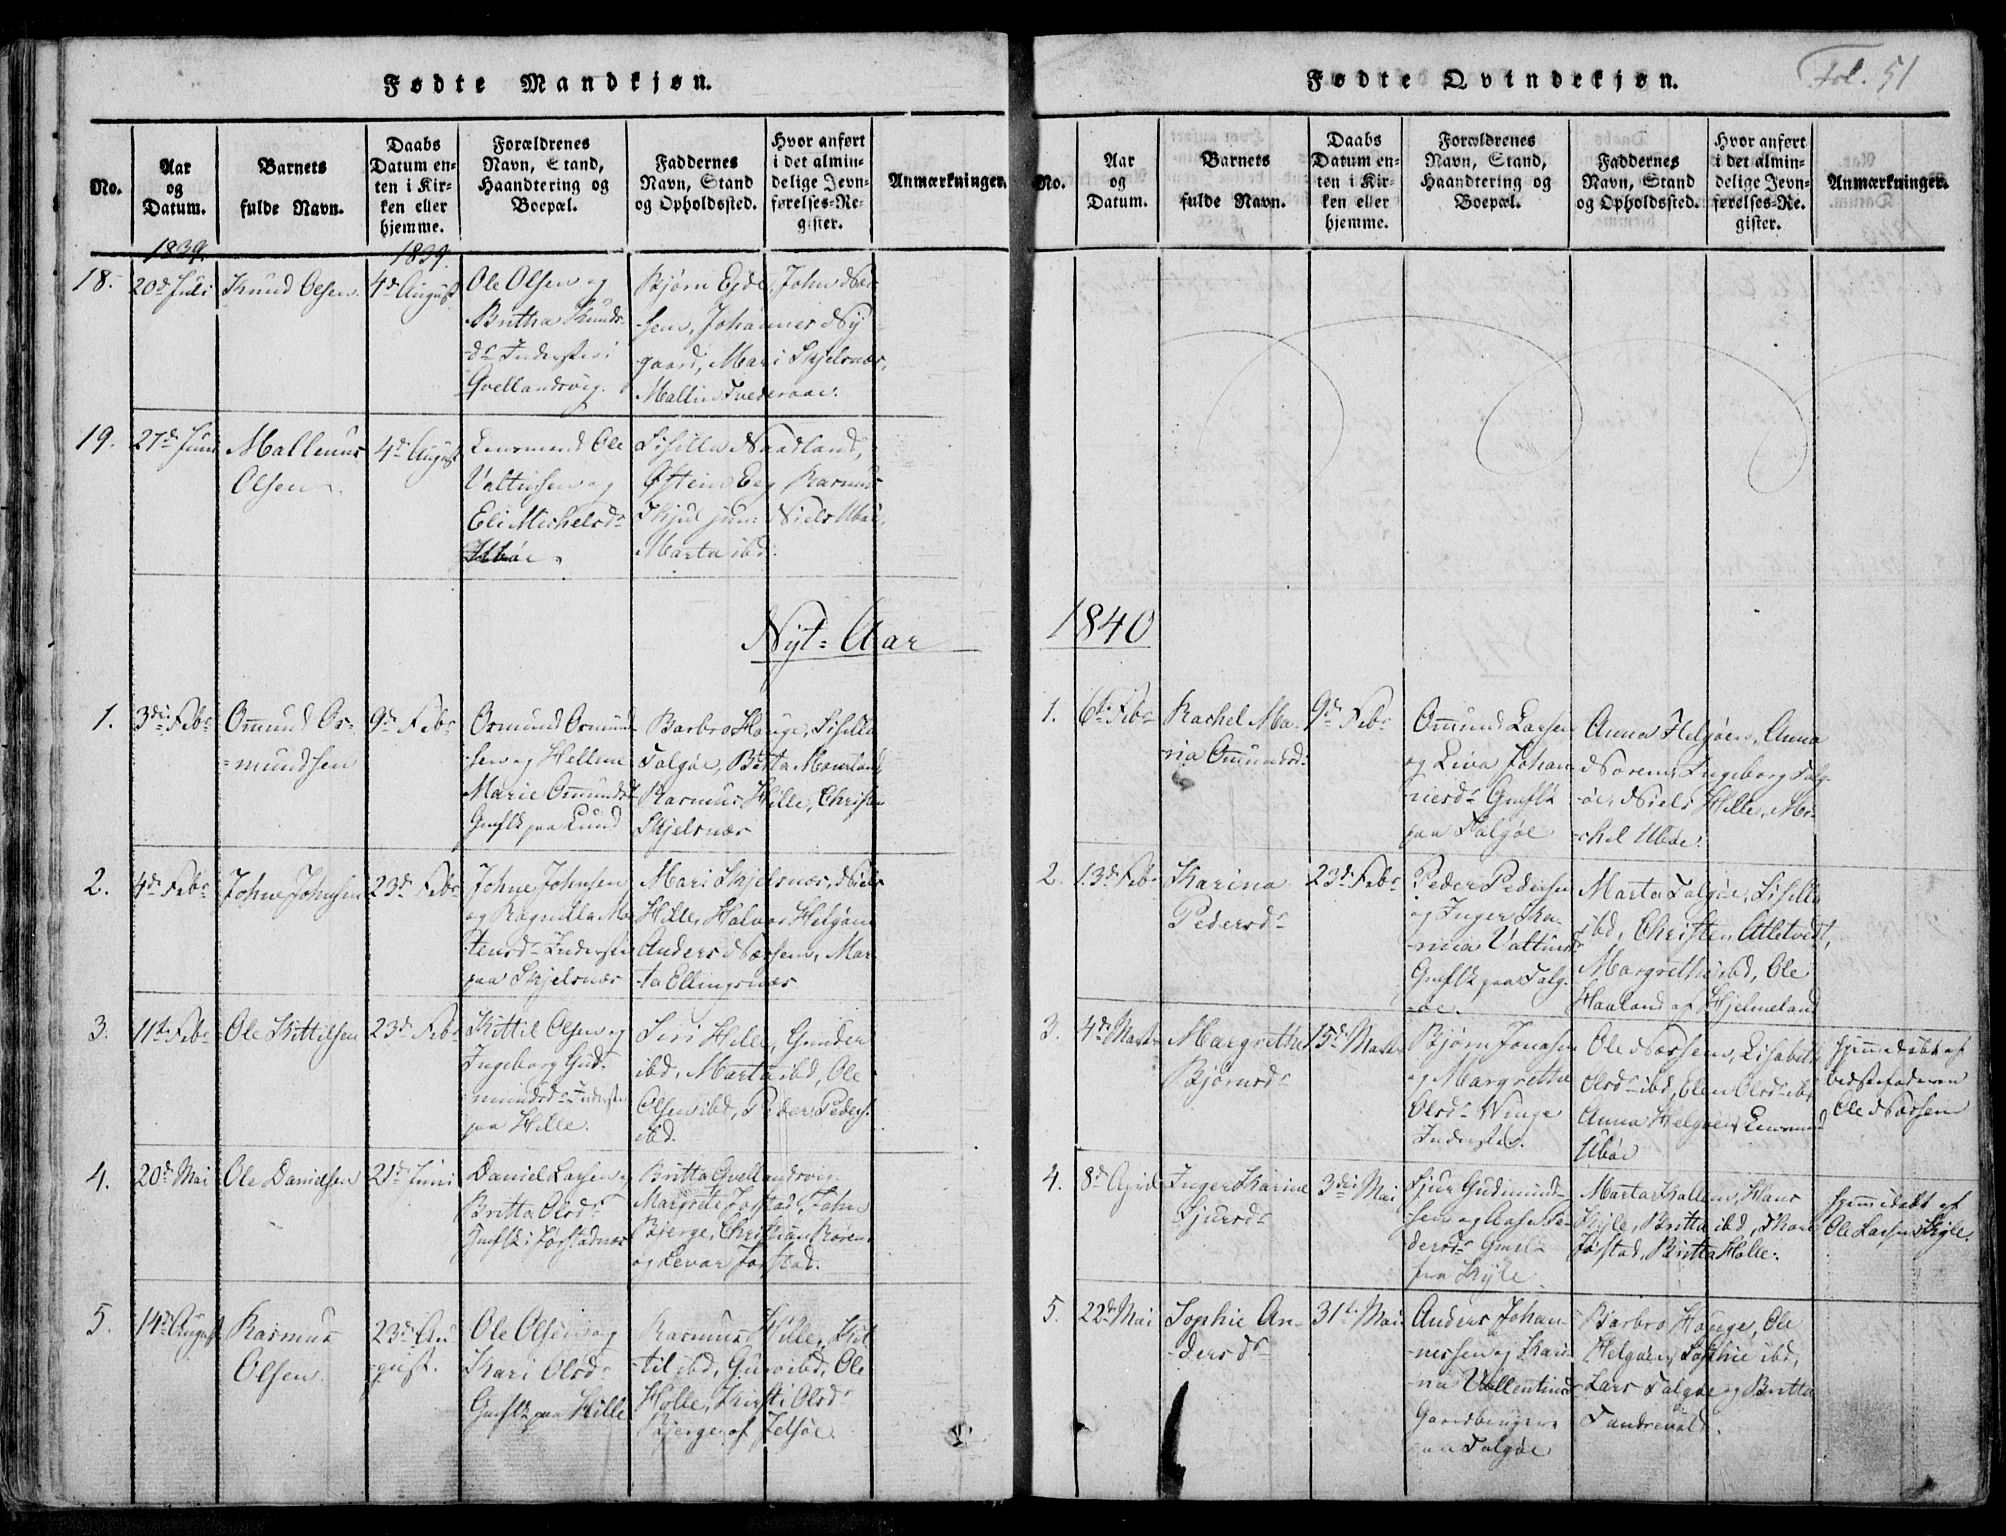 Fødte Mandkjøn.
No.
Aar
og
Datum.
Barnets
fulde Navn.
Daabs
Datum en-
ten i Kir-
ken eller
hjemme.
Forældrenes
Navn, Stand,
Haandtering og
Boepæl.
Faddernes
Navn, Stand
og Opholdssted.
Hvor anført
i det almin-
delige Jevn-
førelses-Re-
gister.
Anmærkninger.
1839.
1839.
18.
20d Juli
Knud Olsen
4d August
Ole Olsen og
Britha Knuds-
dr Inderster i
Qvellandsvig.
Bjørn Eide, John Næs-
sen, Johannes Ny
gaard, Mari Skjelsnæs,
Mallin
19.
27d Juni
Mallenus
Olsen
4d August
Lensmand Ole
Valtinsen og
Eli Michelsdr
Ubøe
Sisilla Naadland,
Østein Eeg Rasmus
Niels Ubøe,
Marta ibd:
Nyt-Aar
1.
3die Febr
Omund Os-
=mundsen
9d Febr
Osmund Osmund
sen og Hellene
Marie Omundsdr
Gmflk paa Lund
Barbro Houge, Sisilla
Talgøe, Berta Mourland
Rasmus Hille, Christen
Skjelsnæs
2.
4de Febr
Johne Johnsen
23d Febr
Johne Johnsen
og Ragnilla Mor
tensdr Inderster
paa Skjelsnæs
Mari Skjelsnæs, Niels
Hille, Halvor Helgøen
Anders Næssen, Mar
ta Ellingsnæs
3.
11te Febr
Ole Kittilsen
23d Febr
Kittil Olsen og
Ingeborg Gud-
mundsdr Inderster
paa Hille.
Siri Hille, Gunder
ibd, Marta ibd, Ole
Olsen ibd, Peder Peders.
ibd.
4.
20d Mai
Ole Danielsen
21d Juni
Daniel Larsen og
Britta Olsdr
Gmflk i Jørstadnæs
Britta Qvellandsvig
Margrete Jørstad, John
Bjerge, Christian Røren
og Levar Jørstad.
5.
14d August
Rasmus
Olsen
23d Au
gust.
Ole Olsen og
Kari Olsdr
Gmflk paa Hille
Rasmus Hille, Kit
til ibd, Guro ibd, Ole
Holle, Kirsti Olsdr
Bjerge af Jelsøe
Fødte Qvindekjøn.
Fol. 51
No.
Aar
og
Datum.
Barnets
fulde Navn.
Daabs
Datum en-
ten i Kir-
ken eller
hjemme.
Forældrenes
Navn, Stand,
Haandtering og
Boepæl.
Faddernes
Navn, Stand
og Opholdssted.
Hvor anført
i det almin-
delige Jevn-
førelses-Re-
gister.
Anmærkninger.
1840
1.
6te Febr
Rachel Ma-
ria Omundsdr
9d Febr
Omund Larsen
og Liva Johan
nesdr Gmflk
paa Talgøe
Anna Helgøen, Anna
Norem, Ingeborg Talg-
øe, Niels Hille, Mi-
chel Ubøe.
2.
13d Febr
Karina
Pedersdr
23d Febr
Peder Pedersen
og Inger Ka-
rina Valtinsdr
Gmflk paa Talg-
øe.
Marta Talgøe, Sisilla
ibd, Christen Atletvedt,
Margrethe ibd, Ole
Haaland af Hjelmeland
3.
4d Marts
Margrethe
Bjørnsdr
15d Marts
Bjørn Jonasen
og Margrethe
Olsdr Winge
Inderster.
Ole Næssen, Lisabeth
Olsdr ibd, Elen Olsdr ibd
Anna Helgøen, Lensmand
Ubøe
hjemmedøbt af
bedstefaderen
Ole Næssen
4.
8d April
Inger Karine
Sjursdr
3die Mai
Sjur Gudmund-
sen og Aase Pe-
dersdr Gmflk
fra Kyle
Marta Hallem, Hans
Kyle, Britta ibd,
Jøstad, Britta Holle.
hjemmedøbt af
Ole Larsen Kyle.
5.
22d Mai
Sophie An-
dersdr
31te Mai
Anders Johan-
nessen og Kari-
na Vallentinsdr
Gaardbruger
paa Talgøe
Barbro Houge, Ole
Helgøen, Sophie ibd,
Lars Talgøe og Britta
Tandrevold.